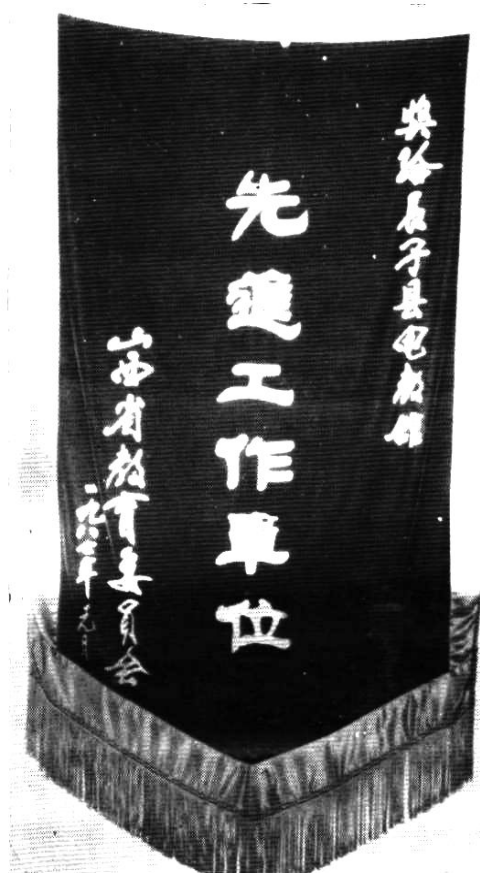 奖给长子县电教馆
先進工作單位
山西省教育委员会
一九八七年元月